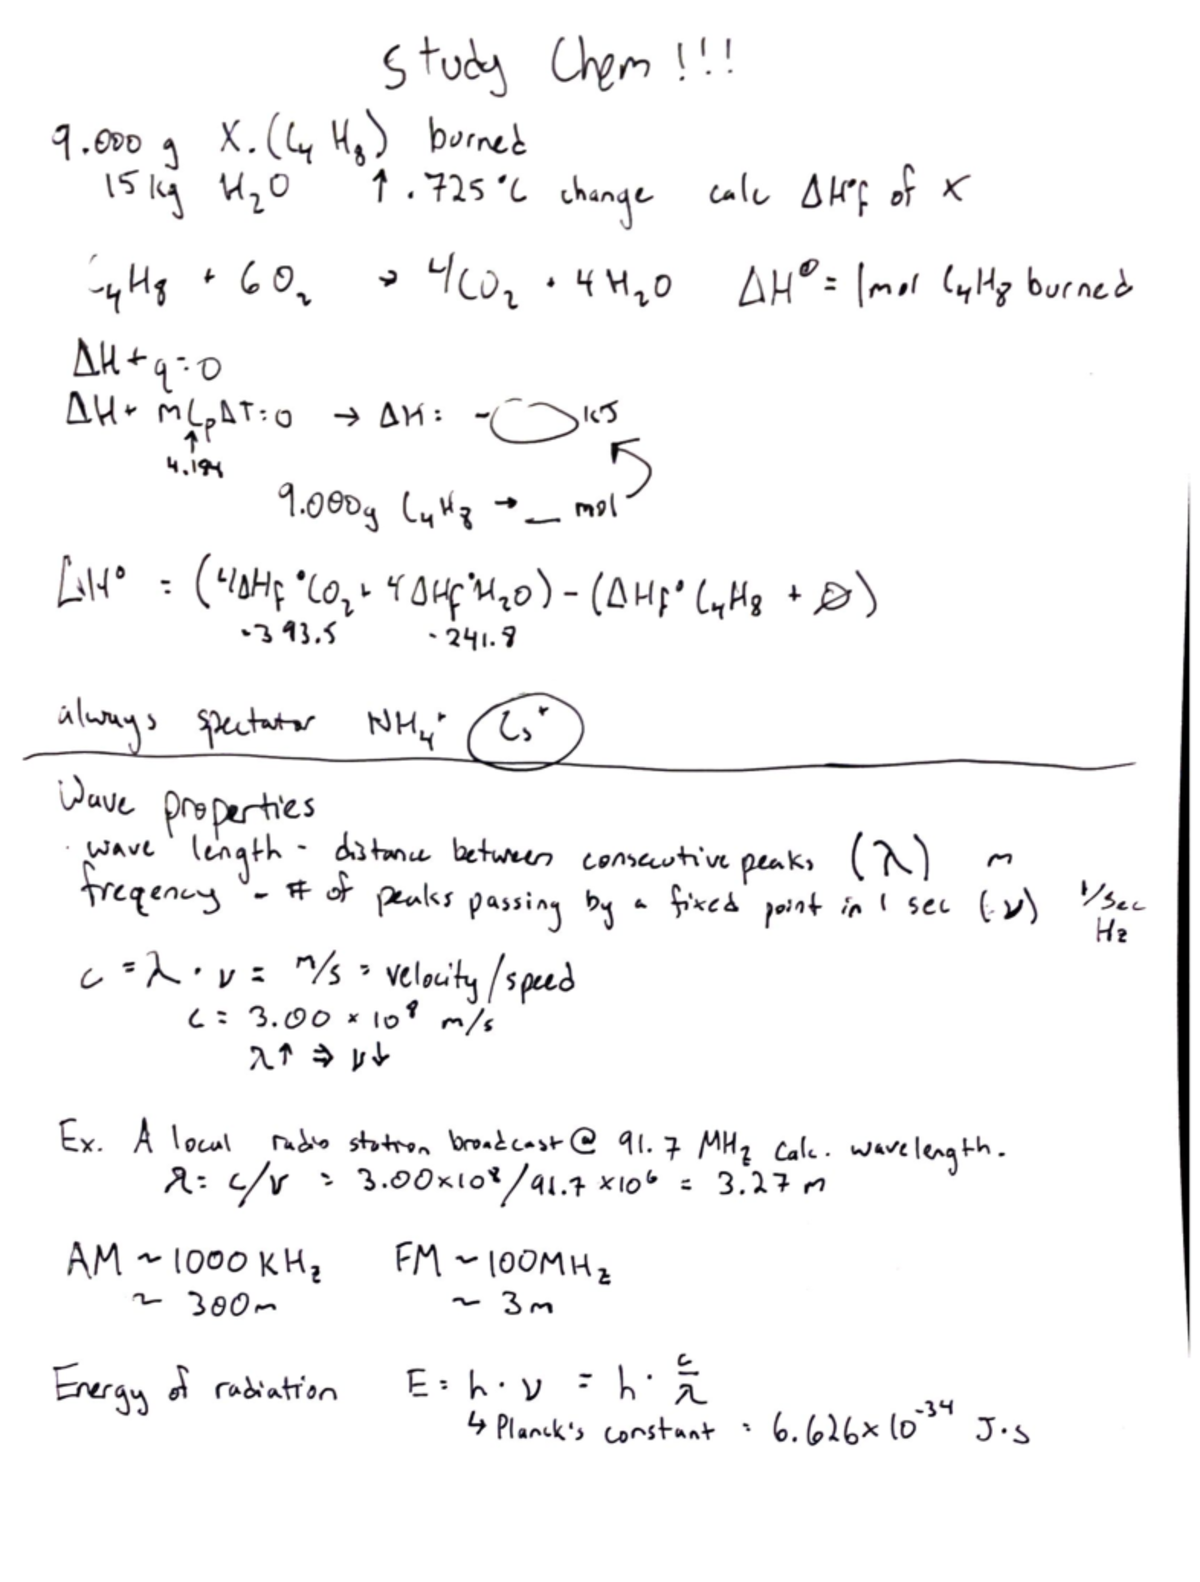 Study Chem !!!
9.000 g X. (C₄H₈) burned
15 kg H₂O ↑ .725°C change calc ΔH°f of X
C₄H₈ + 6O₂ → 4CO₂ + 4H₂O ΔH° = 1mol C₄H₈ burned
ΔH + q = 0
ΔH + mCpΔT = 0 → ΔH = - kJ
↑
4.184
9.000g C₄H₈ → __ mol
ΔH° = (4ΔHf°CO₂ + 4ΔHf°H₂O) - (ΔHf° C₄H₈ + ∅)
-393.5 -241.8
always spectator NH₄⁺ Cs⁺
Wave properties
· wave length - distance between consecutive peaks (λ) m
freqency - # of peaks passing by a fixed point in 1 sec (ν) 1/sec
Hz
c = λ · ν = m/s = velocity/speed
c = 3.00 × 10⁸ m/s
λ↑ ⇒ ν↓
Ex. A local radio station broadcast @ 91.7 MHz calc. wavelength.
λ = c/ν = 3.00×10⁸/91.7×10⁶ = 3.27 m
AM ~ 1000 KHz FM ~ 100MHz
~ 300m ~ 3m
Energy of radiation E = h · ν = h · c/λ
↳ Planck's constant = 6.626×10⁻³⁴ J·s